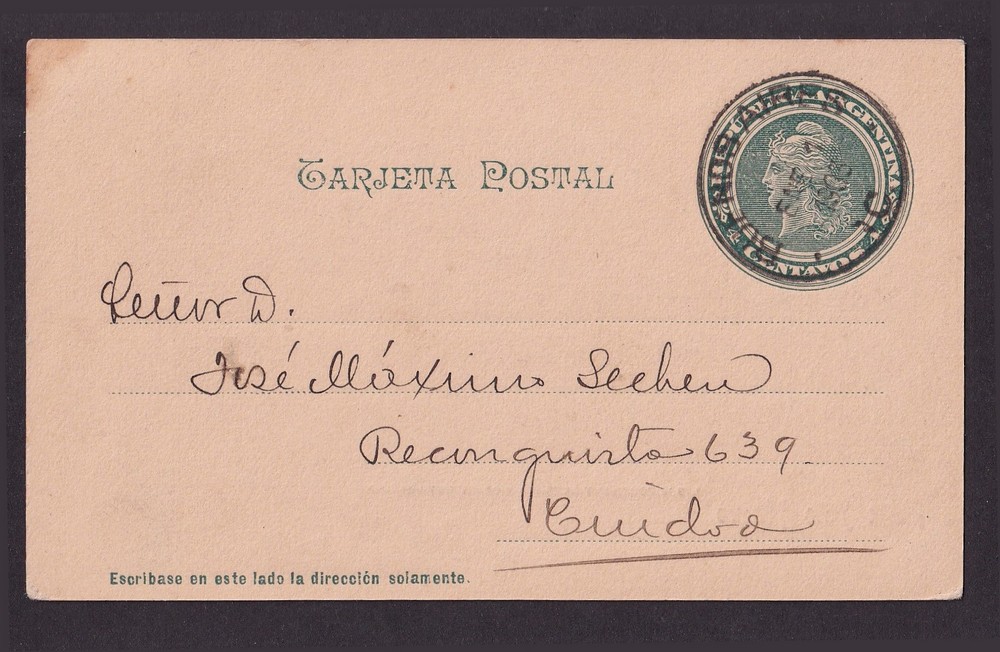 TARJETA POSTAL
REPÚBLICA ARGENTINA
4 CENTAVOS 4
BUENOS AIRES
Señor D.
José Máximo
Reconquista 639.
Ciudad
Escribase en este lado la dirección solamente.